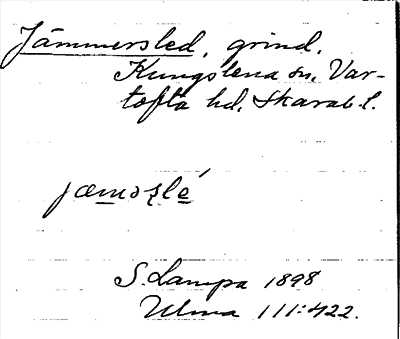 Jämmersled, grind,
Kungslena sn, Var-
tofta hd, Skarab. l.
jæməʂlé
S. Lampa 1898
Ulma 111:422.